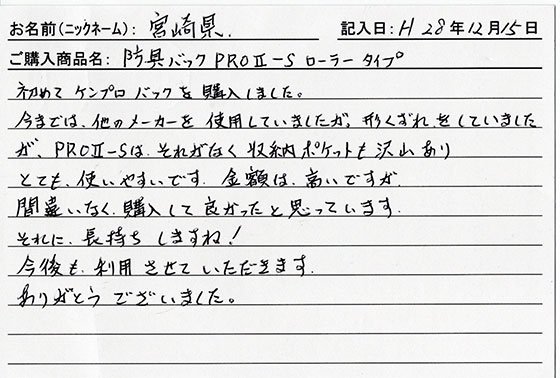 お名前(ニックネーム): 宮崎県. 記入日: H 28年12月15日
ご購入商品名: 防具バック PROⅡ-S ローラータイプ
初めて ケンプロ バックを購入しました。
今までは、他のメーカーを 使用していましたが、形くずれをしていました
が、PROⅡ-Sは、それがなく 収納ポケットも沢山あり
とても、使いやすいです. 金額は、高いですが.
間違いなく、購入して良かったと思っています.
それに、長持ちしますね!
今後も、利用させていただきます.
ありがとうございました。